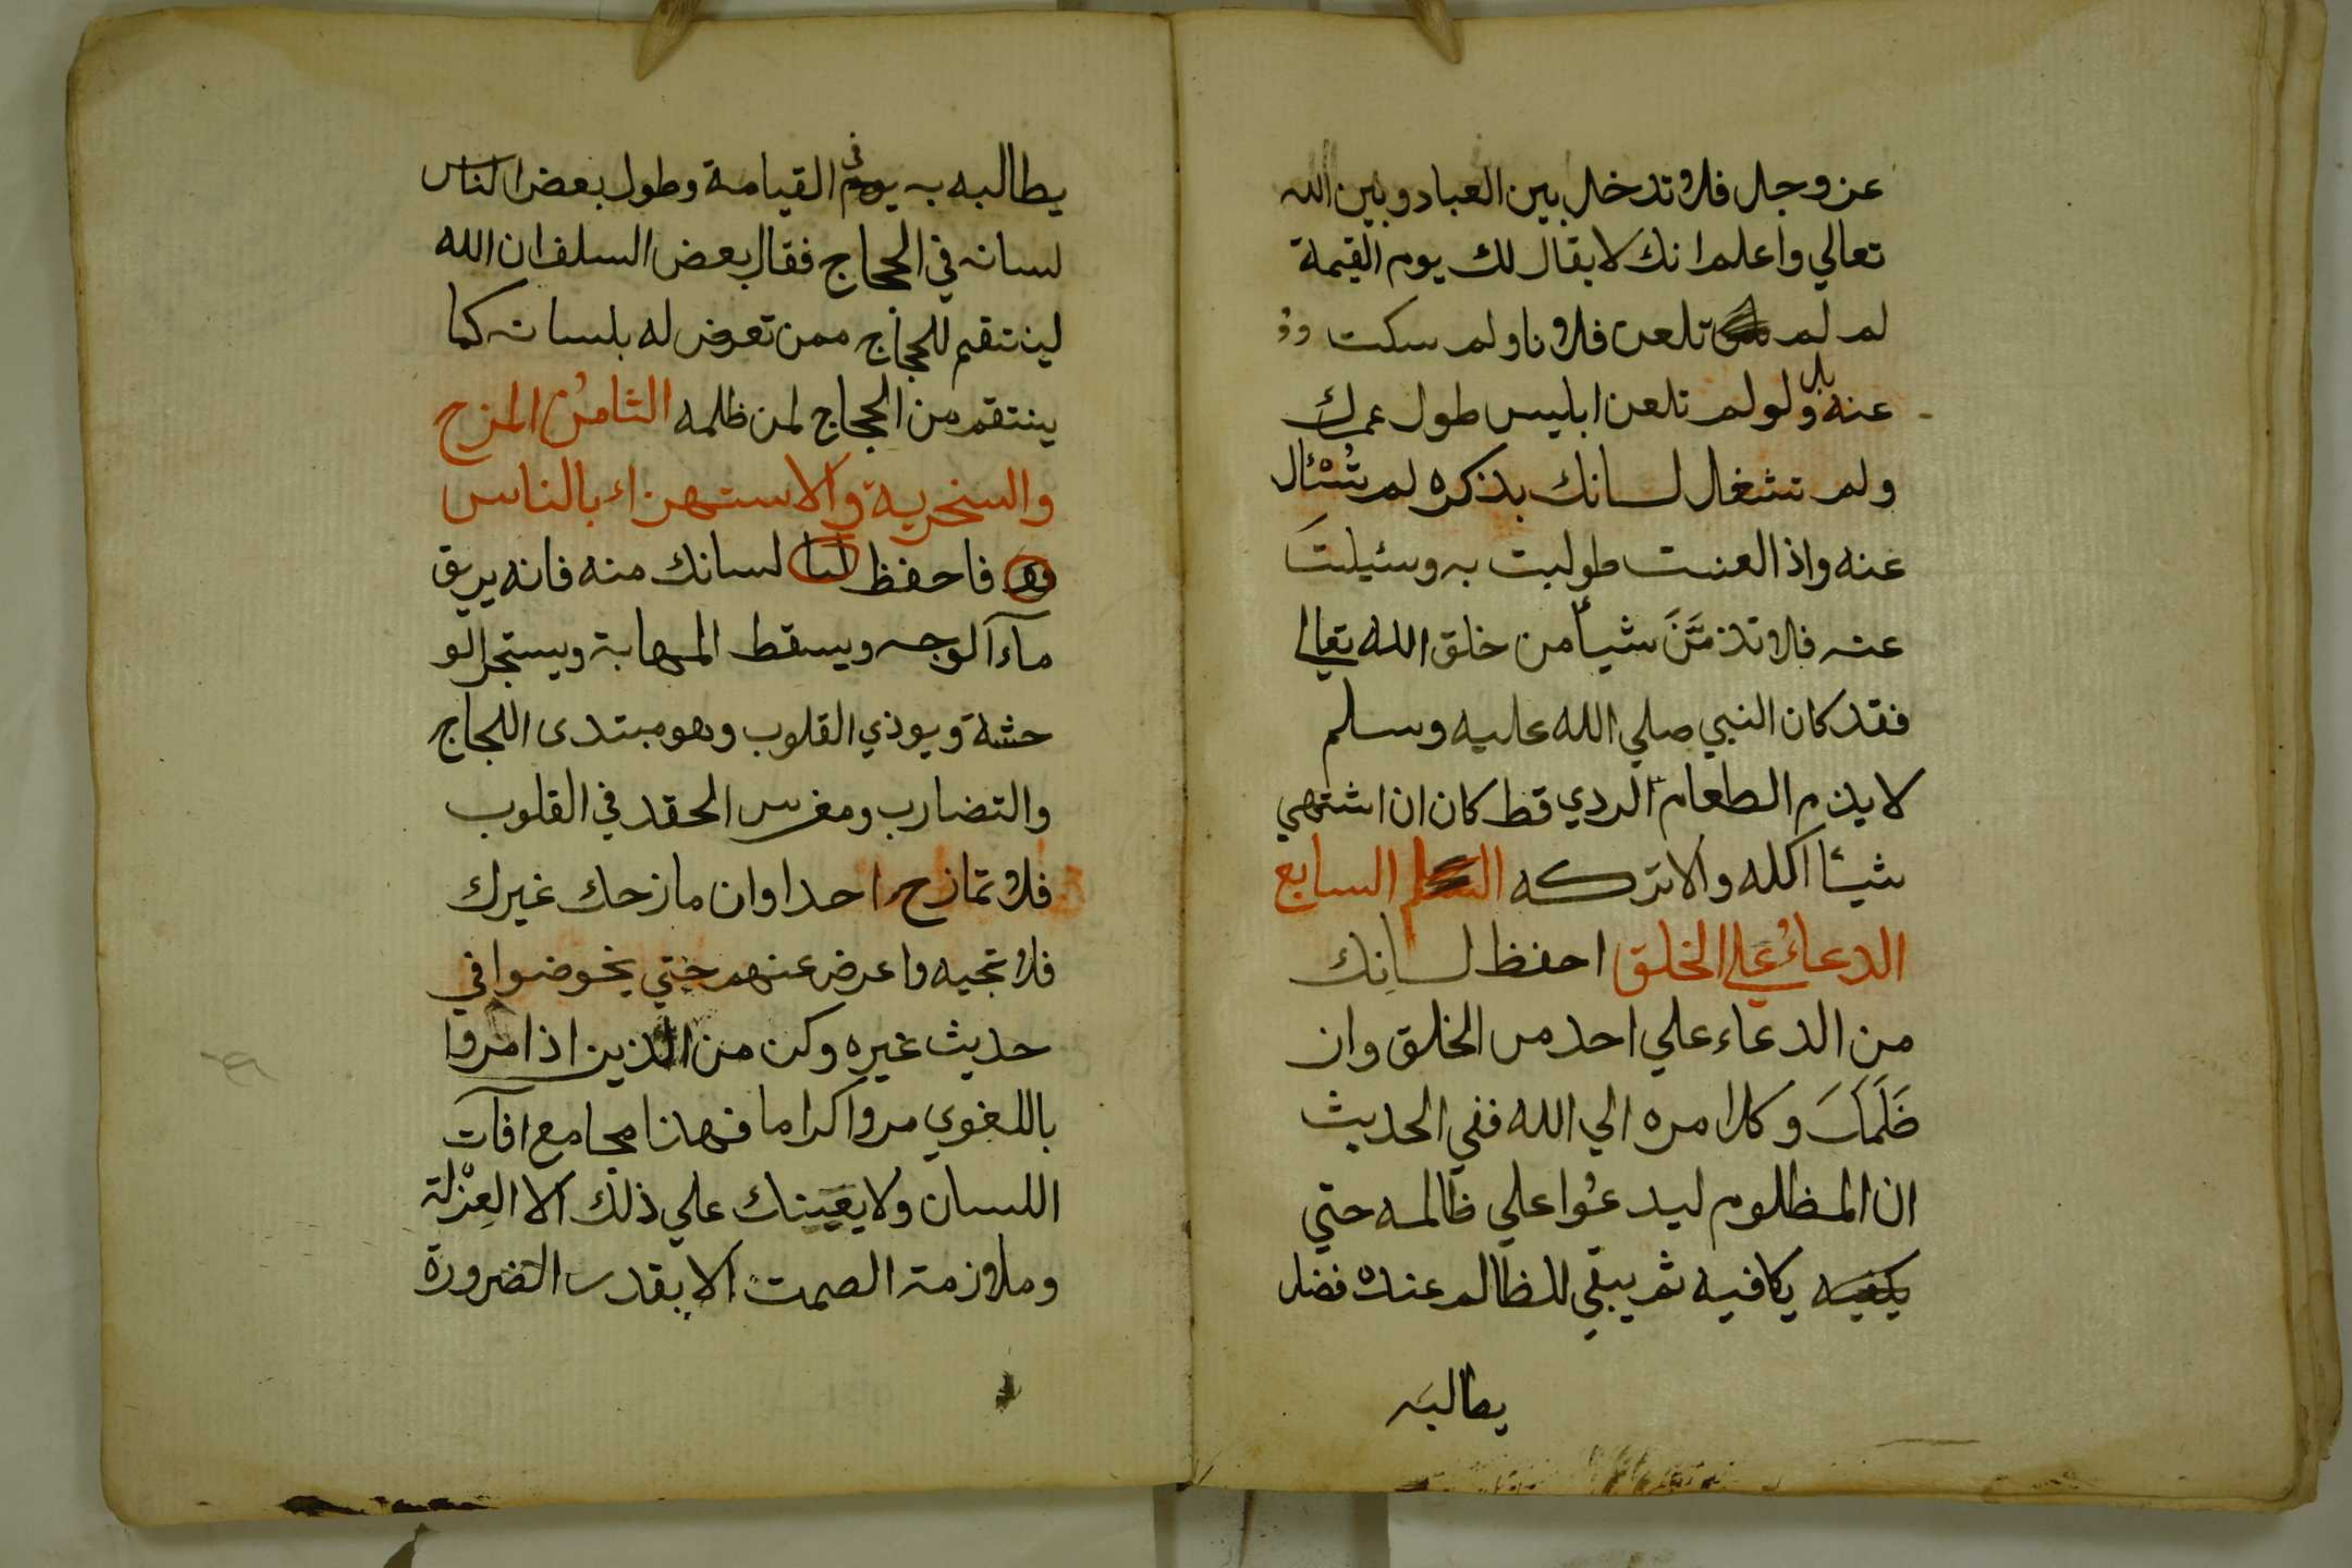 عز وجل فلا تدخل بين العباد وبين الله
تعالي واعلم انك لا يقال لك يوم القيمة
لم لم تلعن فلانا ولم سكت
عنه بل ولو لم تلعن ابليس طول عمرك
ولم تشغل لسانك بذكره لم تسئال
عنه واذا لعنت طولبت به وسئيلت
عنه فلا تذمَّنَ شيأ من خلق الله تعالي
فقد كان النبي صلي الله عليه وسلم
لا يذم الطعام الردي قط كان ان اشتهي
شيئا اكله والا تركه السابع
الدعاءُ علي الخلق احفظ لسانك
من الدعاء علي احد من الخلق وان
ظَلَمَكَ وكل امره الي الله ففي الحديث
ان المظلوم ليدعُوا علي ظالمه حتي
يكفيه يكافيه ثم يبقي للظالم عنده فضل
يطالبه
يطالبه به يوم في القيامة وطول بعض الناس
لسانه في الحجاج فقال بعض السلف ان الله
لينتقم للحجاج ممن تعرض له بلسانه كما
ينتقم من الحجاج لمن ظلمه الثامنُ المزح
والسخرية والاستهزاء بالناس
فاحفظ لسا لسانك منه فانه يريق
مآء الوجه ويسقط المهابة ويستجر الو
حشة ويوذي القلوب وهو مبتدى اللجاج
والتضارب ومغرس الحقد في القلوب
فلا تمازح احدا وان مازحك غيرك
فلا تجبه واعرض عنهم حتي يخوضوا في
حديث غيره وكن من الذين اذا مروا
باللغوي مروا كراما فهذا مجامع افآت
اللسان ولا يعينك علي ذلك الا العِزْلة
وملازمة الصمت الا بقدر الضرورة